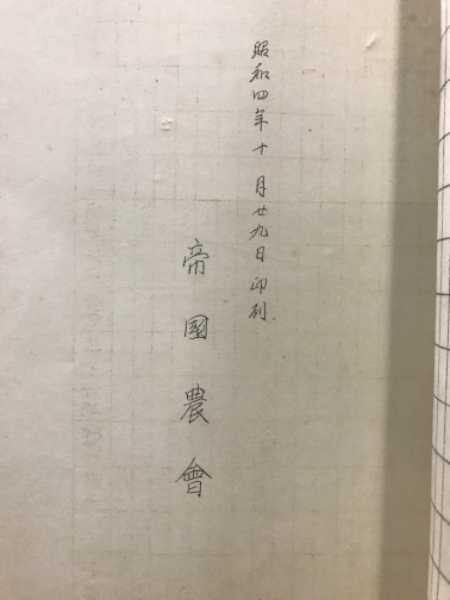 昭和四年十月廿九日印刷
帝國農會